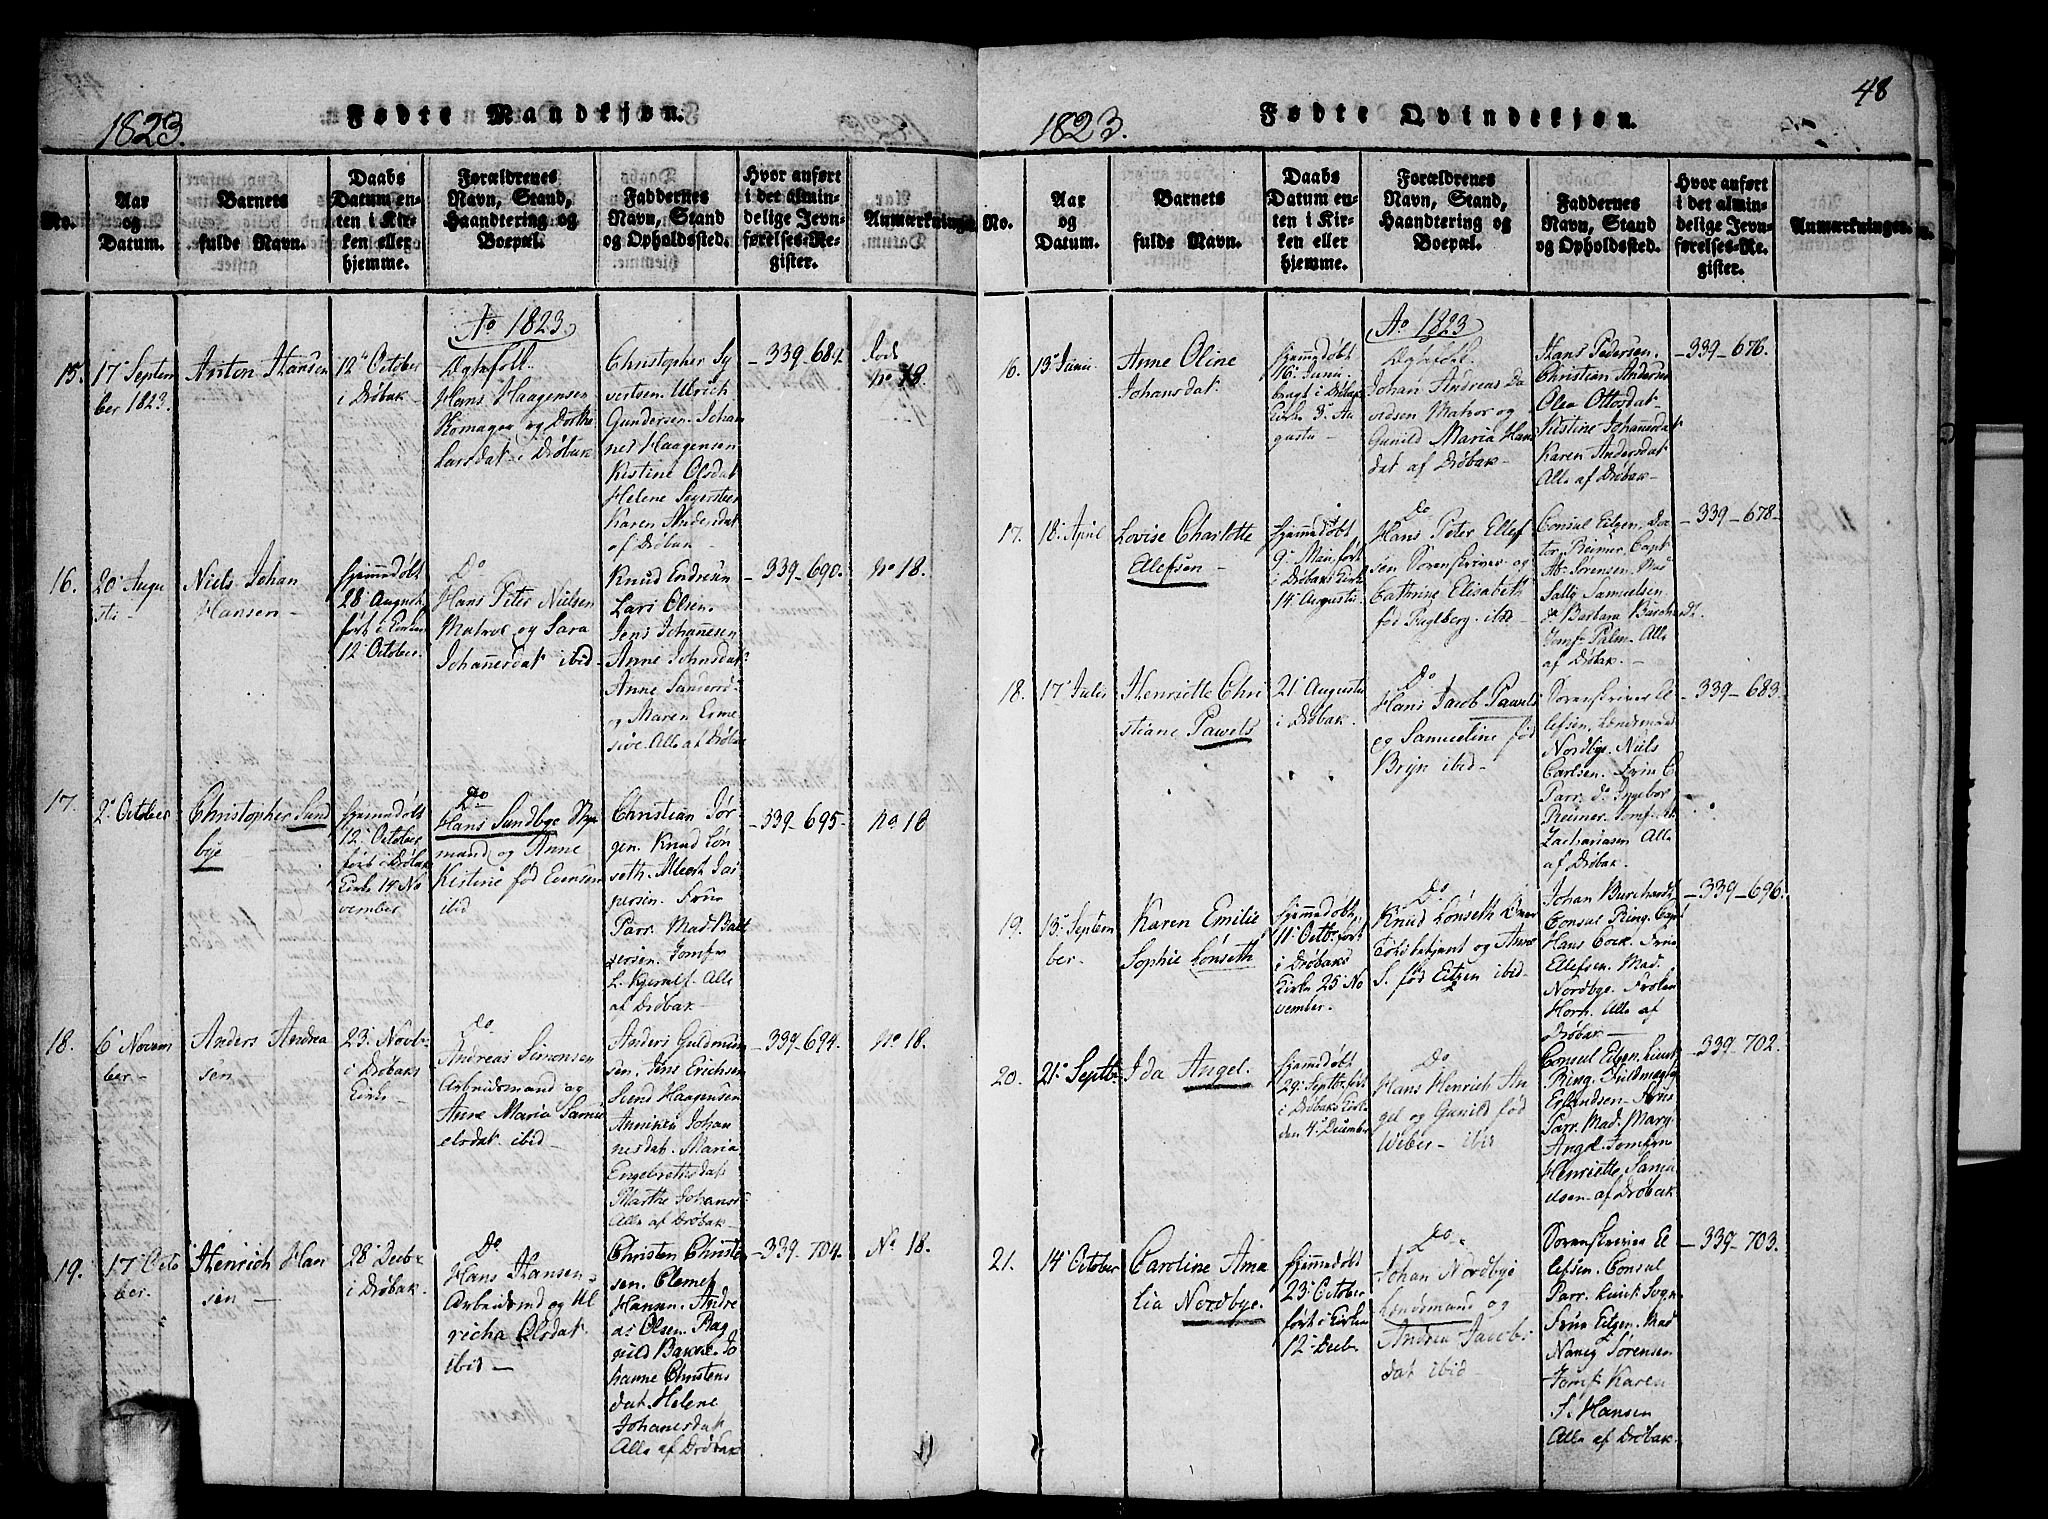 1823.
Fødte Mandkjøn.
No.
Aar
og
Datum.
Barnets
fulde Navn.
Daabs
Datum en-
ten i Kir-
ken eller
hjemme.
Forældrenes
Navn, Stand,
Haandtering og
Boepæl.
Faddernes
Navn, Stand
og Opholdssted.
Hvor anført
i det almin-
delige Jevn-
førelses-Re-
gister.
Anmærkninger
Ao 1823
15.
17 Septem
ber 1823.
Anton Hansen
12 October
i Drøbak
Ægtefolk.
Hans Haagensen
Komagen og Dorthe
Larsdat i Drøbak
Christopher Sy
vertsen. Ulrich
Gundersen. Johan
nes Haagensen
Kistine Olsdat
Helene
Karen Andersdat
af Drøbak
339-689.
No 18.
16.
20 Augu
sti
Niels Johan
Hansen
hjemmedøbt
28 August
ført i Kirken
12 October
Do
Hans Peter Nielsen
Matros og Sara
Johannesdat ibid
Knud Endresen
Lars Olsen.
Jens Johannesen
Anne Johnsdat
Anne
og Maren
Alle af Drøbak
339-690.
No 18.
17.
2 October
Christopher Sund
bye
hjemmedøbt
12 October
ført i Drøbak
Kirke 14 No
vember
Do
Hans Sundbye
mand og Anne
Kistine fød Evensen
ibid
Christian Jør
gen. Knud Løn
seth. Albert Jas
persen. Frue
Parr. Mad Balt
zersen. Jomfru
L. Alle
af Drøbak
339-695.
No 18
18.
6 Novem
ber
Anders Andrea
sen
23 Novb.
i Drøbaks
Kirke
Do
Andreas Simonsen
Arbeidsmand og
Anne Maria Samu
elsdat ibid
Anders Guldmun
sen. Jens Erichsen
Svend Haagensen
Anniken Johan
nesdat. Maria
Engebrethsdat
Marthe Johans
Alle af Drøbak
339-694.
No 18.
19.
17 Octo
ber.
Henrich Han
sen
28 Decbr
i Drøbak.
Do
Hans Hansen
Arbeidsmd og Ul
richa Olsdat
ibid
Christen Christen
sen. Clemet
Hansen. Andre
as Olsen. Rag
nild Bakke. Jo
hanne Christens
dat. Helene
Johanesdat
Alle af Drøbak
339-704.
No 18.
48
1823.
Fødte Qvindekjøn.
No.
Aar
og
Datum.
Barnets
fulde Navn.
Daabs
Datum en-
ten i Kir-
ken eller
hjemme.
Forældrenes
Navn, Stand,
Haandtering og
Boepæl.
Faddernes
Navn, Stand
og Opholdssted.
Hvor anført
i det almin-
delige Jevn-
førelses-Re-
gister.
Anmærkninger.
Ao 1823
16.
13 Junii
Anne Oline
Johansdat
hjemmedøbt
16 Junii
bragt i Drøbak
Kirke 3 Au
gustii
Ægtefolk.
Johan Andreas Da
vidsen Matros og
Gunild Maria Hans
dat af Drøbak
Hans Pedersen.
Christian Andersen
Olea Ottosdat
Kistine Johannesdat
Karen Andersdat
Alle af Drøbak
339-676.
17.
18 April
Lovise Charlotte
Ellefsen
hjemmedøbt
9 Mai ført
i Drøbaks Kirke
14 Augustii
Do
Hans Peter Ellef
sen Sorenskriver og
Cathrine Elisabeth
fød Fuglberg. ibid
Consul Eitzen, Doc
tor Reimer. Capt
Ab. Sørensen. Mad
Sally Samuelsen.
do Barbara Burchardt.
Jomf. Palm. Alle
af Drøbak
339-678
18.
17 Julii
Henriette Chri
stiane Pawels
21 Augusti
i Drøbak.
Do
Hans Jacob Pawels
og Samueline fød
Bryn ibid
Sorenskriver El
lefsen, Lændsmand
Nordbye. Niels
Carlsen. Frun C.
Parr. do Ingebor
Reimer. Jomf. M.
Zachariasen Alle
af Drøbak.
339-683
19.
13 Septem
ber
Karen Emilie
Sophie Lønseth
hjemmedøbt
11 Octb. ført
i Drøbaks
Kirke 25 No
vember.
Do
Knud Lønseth Over
Toldbetjent og Anne
S. fød Eitzen ibid
Johan Burchardt
Consul Ring. Capt
Hans Cock. Frue
Ellefsen. Mad.
Nordbye. Frøken
Horn. Alle af
Drøbak
339-696.
20.
21 Septb.
Ida Angel.
hjemmedøbt
29 Septb. ført
i Drøbaks Kirke
den 4 December
Do
Hans Henrich An
gel og Gunild fød
Weber ibid
Consul Eitzen, Lieut
Ring. Fuldmægtig
Erlandsen. Frue
Parr. Mad. Mary
Angel. Jomfru
Henriette Samu
elsen af Drøbak
339-702.
21.
14 October
Caroline Ama
lia Nordbye.
hjemmedøbt
23 October
ført i Kirken
12 Decb.
Do
Johan Nordbye
Lændsmand og
Andrea Jacobs
dat ibid
Sorenskriver El
lefsen. Consul
Parr. Lieut Sogn
Frue Eitzen. Mad
Nancy Sørensen
Jomf. Karen
S. Hansen
Alle af Drøbak.
339-703.